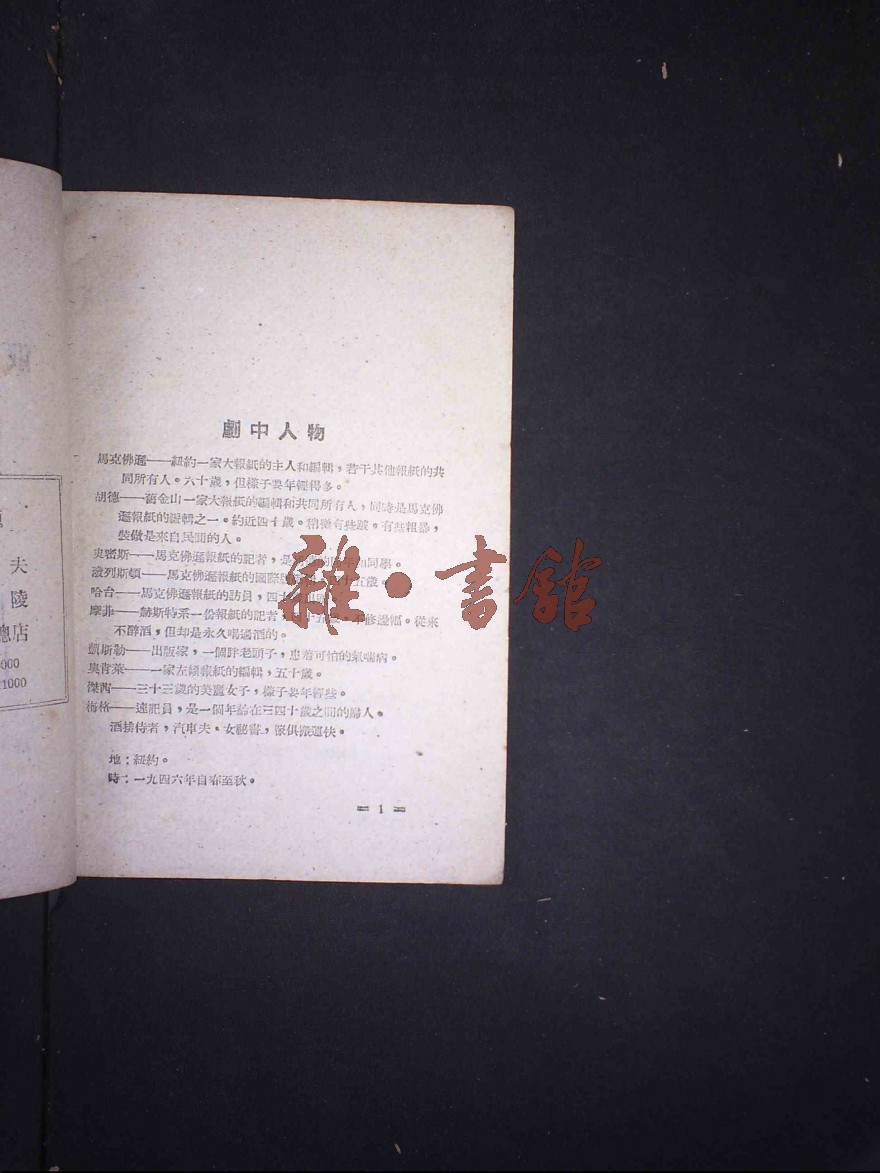 劇中人物
馬克佛遜——紐約一家大報紙的主人和編輯，若干其他報紙的共
同所有人。六十歲，但樣子要年輕得多。
胡德——舊金山一家大報紙的編輯和共同所有人，同時是馬克佛
遜報紙的編輯之一。約近四十歲。稍微有些跛。有些粗暴，
裝做是來自民間的人。
史密斯——馬克佛遜報紙的記者，是 同學。
潑列斯頓——馬克佛遜報紙的國際 五歲。
哈台——馬克佛遜報紙的訪員，四十
摩菲——赫斯特系一份報紙的記者， 不修邊幅。從來
不醉酒，但却是永久喝過酒的。
凱斯勒——出版家，一個胖老頭子，患着可怕的氣喘病。
奧肯萊——一家左傾報紙的編輯，五十歲。
傑茜——三十三歲的美麗女子，樣子要年輕些。
梅格——速記員，是一個年齡在三四十歲之間的婦人。
酒排侍者，汽車夫，女秘書，傢俱搬運伕。
地：紐約。
時：一九四六年自春至秋。
= 1 =
夫
陵
總店
000
1000
雜·書館